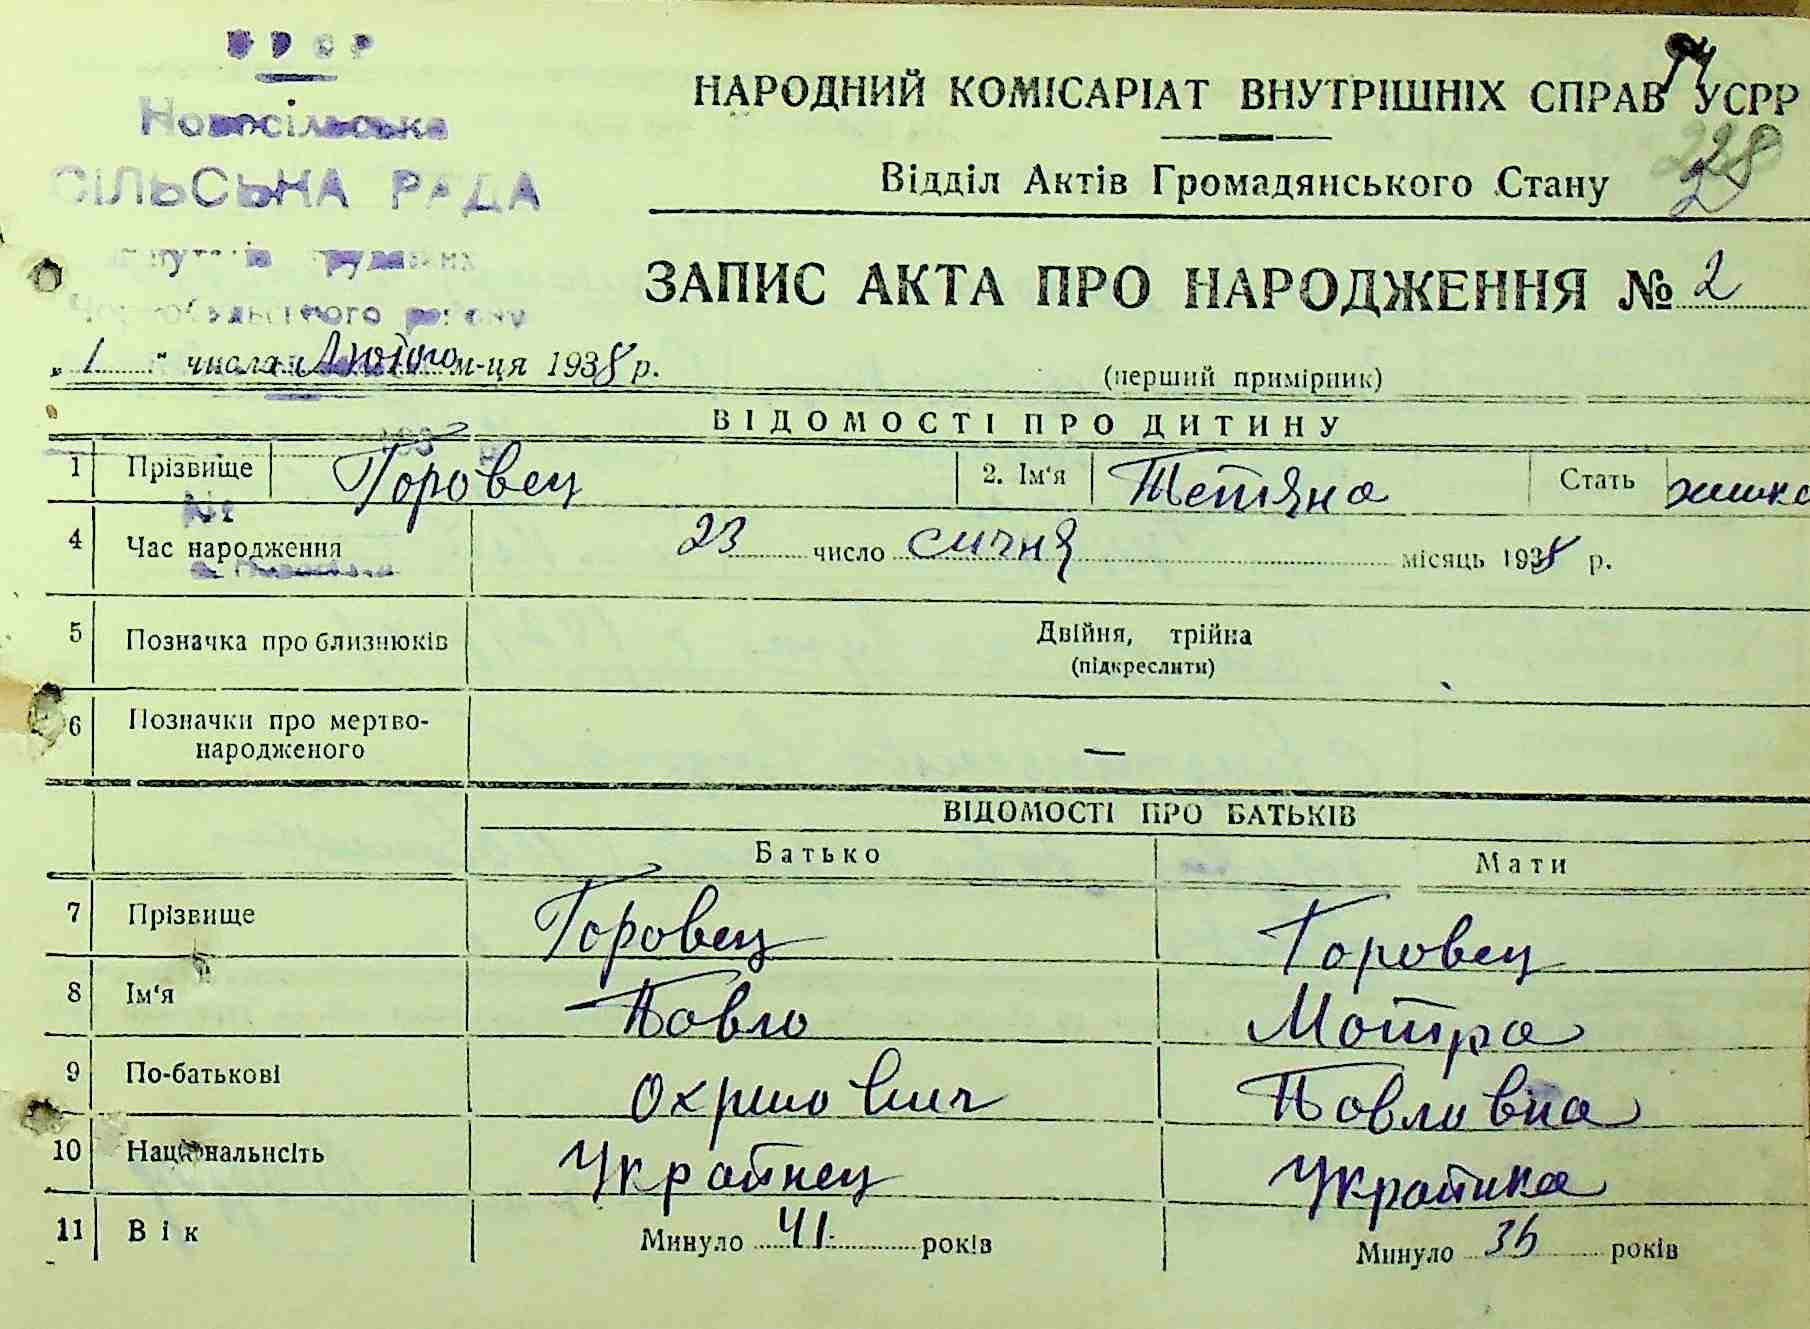 УРСР
Новосільська
СІЛЬСЬКА РАДА
трудящих
Чорнобильського району
НАРОДНИЙ КОМІСАРІАТ ВНУТРІШНІХ СПРАВ УСРР
228
2
Відділ Актів Громадянського Стану
ЗАПИС АКТА ПРО НАРОДЖЕННЯ № 2
„ 1 " числа Лютого м-ця 1938 р.
(перший примірник)
ВІДОМОСТІ ПРО ДИТИНУ
1 Прізвище Горовец 2. Ім'я Тетяна Стать жинка
№
4 Час народження 23 число сичня місяць 1938 р.
5 Позначка про близнюків Двійня, трійна
(підкреслити)
6 Позначки про мертво-
народженого —
ВІДОМОСТІ ПРО БАТЬКІВ
Батько Мати
7 Прізвище Горовец Горовец
8 Ім'я Павло Мотра
9 По-батькові Охримович Павловна
10 Національність Украйнец Украйнка
11 Вік Минуло 41 років Минуло 36 років